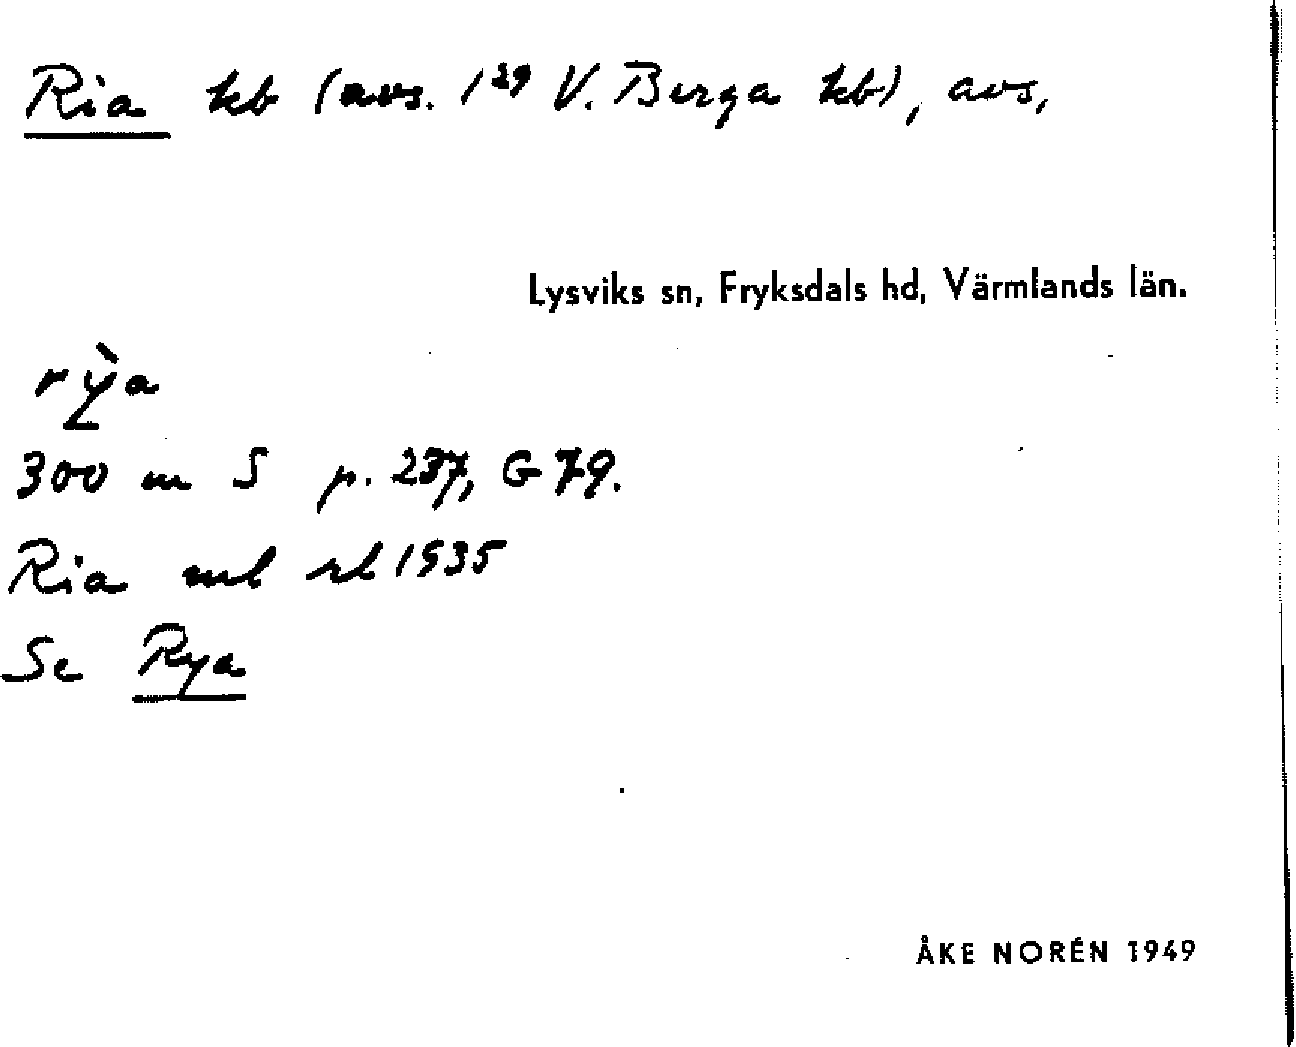 Ria kb (avs. 1²⁹ V. Berga kb), avs,
Lysviks sn, Fryksdals hd, Värmlands län.
rỳa
300 m S p. 237, G 79.
Ria rl 1935
Se Rya
ÅKE NORÉN 1949